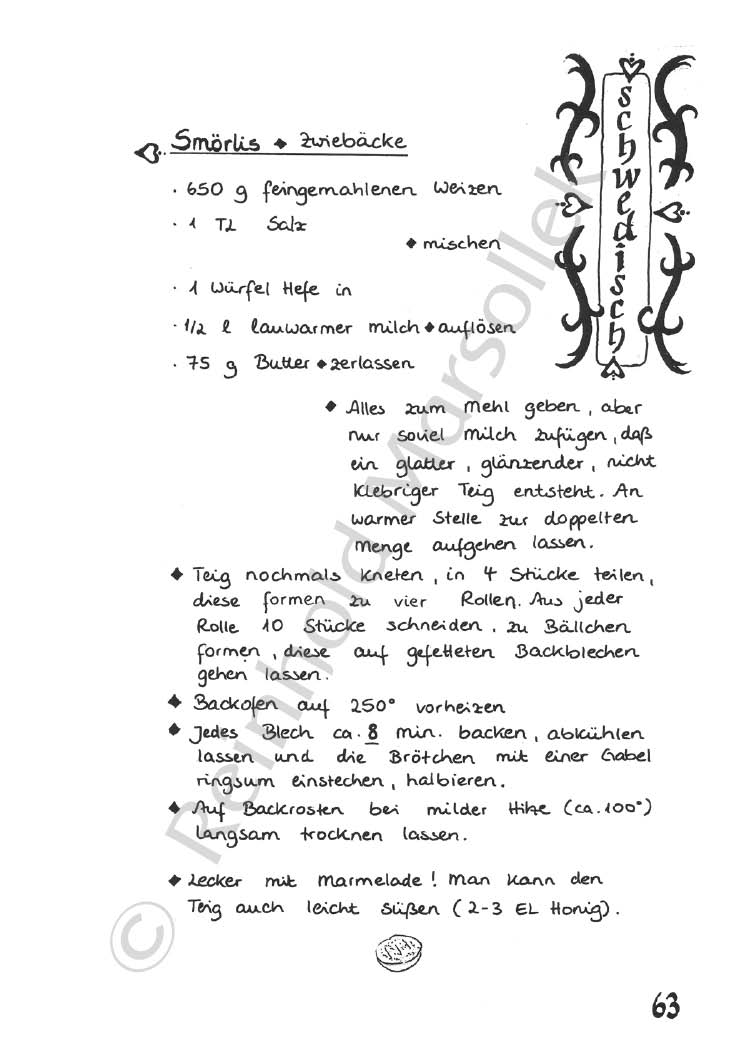 schwedisch
Smörlis ◆ Zwiebäcke
· 650 g feingemahlenen Weizen
· 1 TL Salz
◆ mischen
· 1 Würfel Hefe in
· 1/2 l lauwarmer Milch ◆ auflösen
· 75 g Butter ◆ zerlassen
◆ Alles zum Mehl geben, aber
nur soviel Milch zufügen, daß
ein glatter, glänzender, nicht
klebriger Teig entsteht. An
warmer Stelle zur doppelten
Menge aufgehen lassen.
◆ Teig nochmals kneten, in 4 Stücke teilen,
diese formen zu vier Rollen. Aus jeder
Rolle 10 Stücke schneiden, zu Bällchen
formen, diese auf gefetteten Backblechen
gehen lassen.
◆ Backofen auf 250° vorheizen
◆ Jedes Blech ca. 8 min. backen, abkühlen
lassen und die Brötchen mit einer Gabel
ringsum einstechen, halbieren.
◆ Auf Backrosten bei milder Hitze (ca. 100°)
langsam trocknen lassen.
◆ Lecker mit Marmelade! Man kann den
Teig auch leicht süßen (2-3 EL Honig).
63
© Reinhold Marsollek